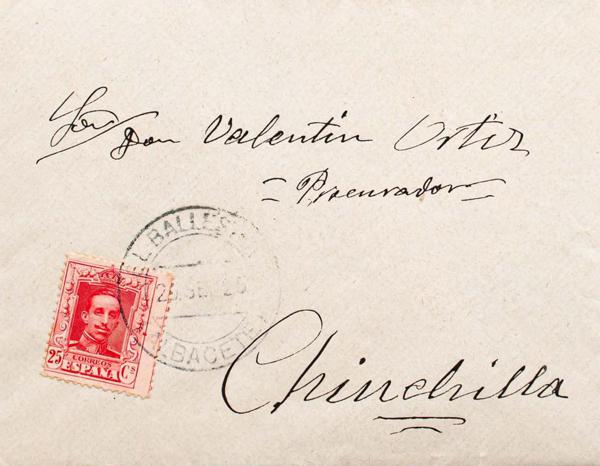 Sor Don Valentin Ortiz
= Procurador =
L BALLEST
25 SE 25
ALBACETE
25 CORREOS Cs
ESPAÑA
Chinchilla